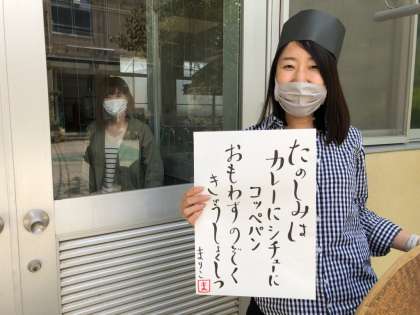 たのしみは
カレーにシチューに
コッペパン
おもわずのぞく
きゅうしょくしつ
まりこ